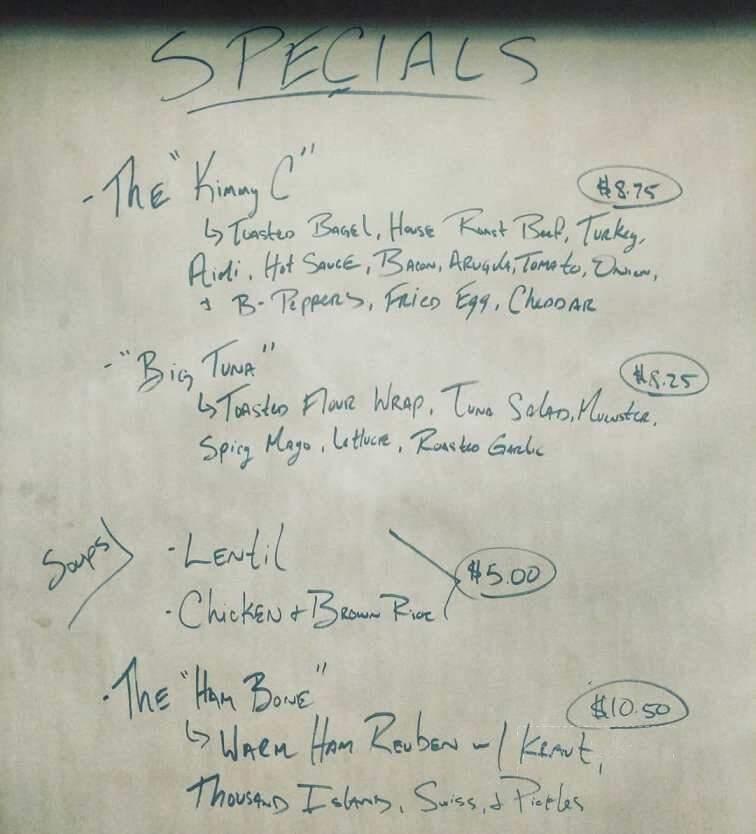 SPECIALS
- The "Kimmy C" $8.75
↳ Toasted Bagel, House Roast Beef, Turkey,
Aioli, Hot Sauce, Bacon, Arugula, Tomato, Onion,
+ B-Peppers, Fried Egg, Cheddar
- "Big Tuna" $8.25
↳ Toasted Flour Wrap, Tuna Salad, Muenster,
Spicy Mayo, Lettuce, Roasted Garlic
Soups
- Lentil
- Chicken + Brown Rice
$5.00
- The "Ham Bone" $10.50
↳ Warm Ham Reuben w/ Kraut,
Thousand Island, Swiss, + Pickles